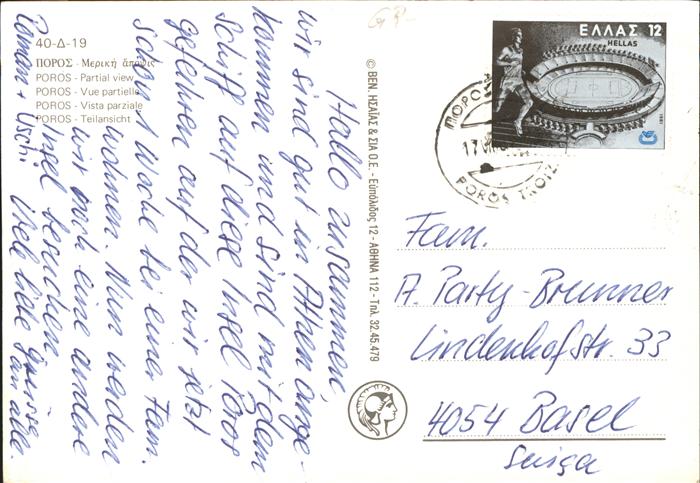 40-Δ-19
ΠΟΡΟΣ - Μερική άποψις
POROS - Partial view
POROS - Vue partielle
POROS - Vista parziale
POROS - Teilansicht
Hallo zusammen,
wir sind gut in Athen ange-
kommen und sind mit dem
Schiff auf diese Insel Poros
gefahren auf der wir jetzt
schon 1 Woche bei einer Fam.
wohnen. Nun werden
wir noch eine andere
Insel besuchen.
Viele liebe Grüsse
an alle.
Roman + Uschi
© ΒΕΝ. ΗΣΑΪΑΣ & ΣΙΑ Ο.Ε. - Ευπόλιδος 12 - ΑΘΗΝΑ 112 - Τηλ. 32.45.479
ΕΛΛΑΣ 12
HELLAS
1981
ΠΟΡΟ
17
POROS
Fam.
A. Party-Brunner
Lindenhofstr. 33
4054 Basel
Suiza